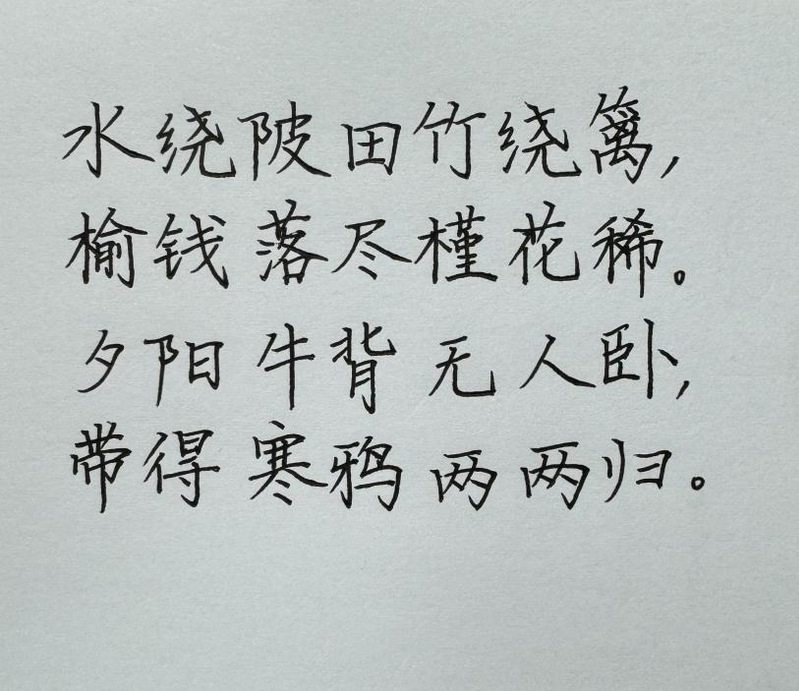 水绕陂田竹绕篱,
榆钱落尽槿花稀。
夕阳牛背无人卧,
带得寒鸦两两归。